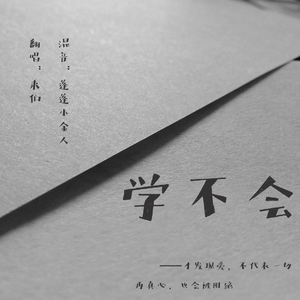 混音：蓬蓬小金人
翻唱：来们
学不会
——才发现爱，不代表一切
再真心，也会被阻绝